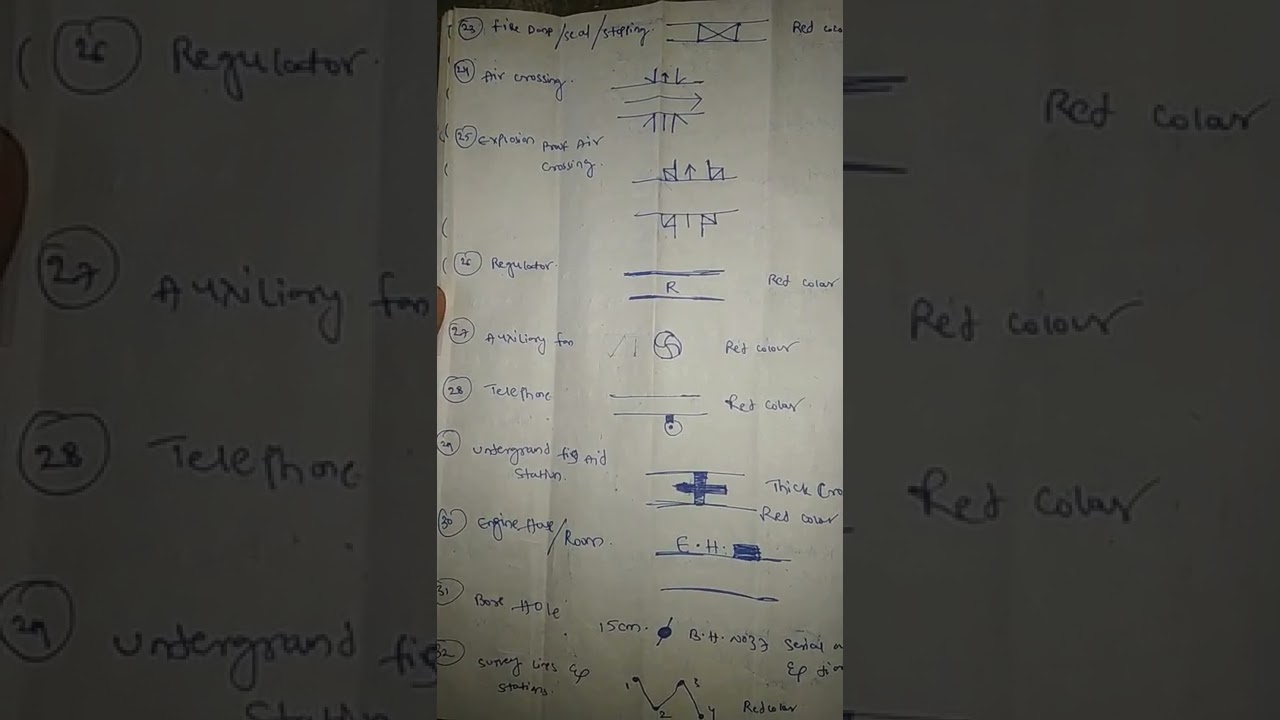 23 fire Damp/seal/stopping. Red colo
24 Air crossing.
25 Explosion Proof Air
crossing.
26 Regulator. R Red colar
27 Auxiliary fan Red colour
28 Telephone Red colar
29 undergrand fist Aid
Station. Thick Cro
Red color
30 Engine House/Room. E.H.
31 Bore Hole 15cm. B.H. No 37 Serial
32 survey lines &
stations. 1 2 3 4 Red color
26 Regulator. Red colar
27 Auxiliary fan Red colour
28 Telephone Red colar
29 undergrand fis